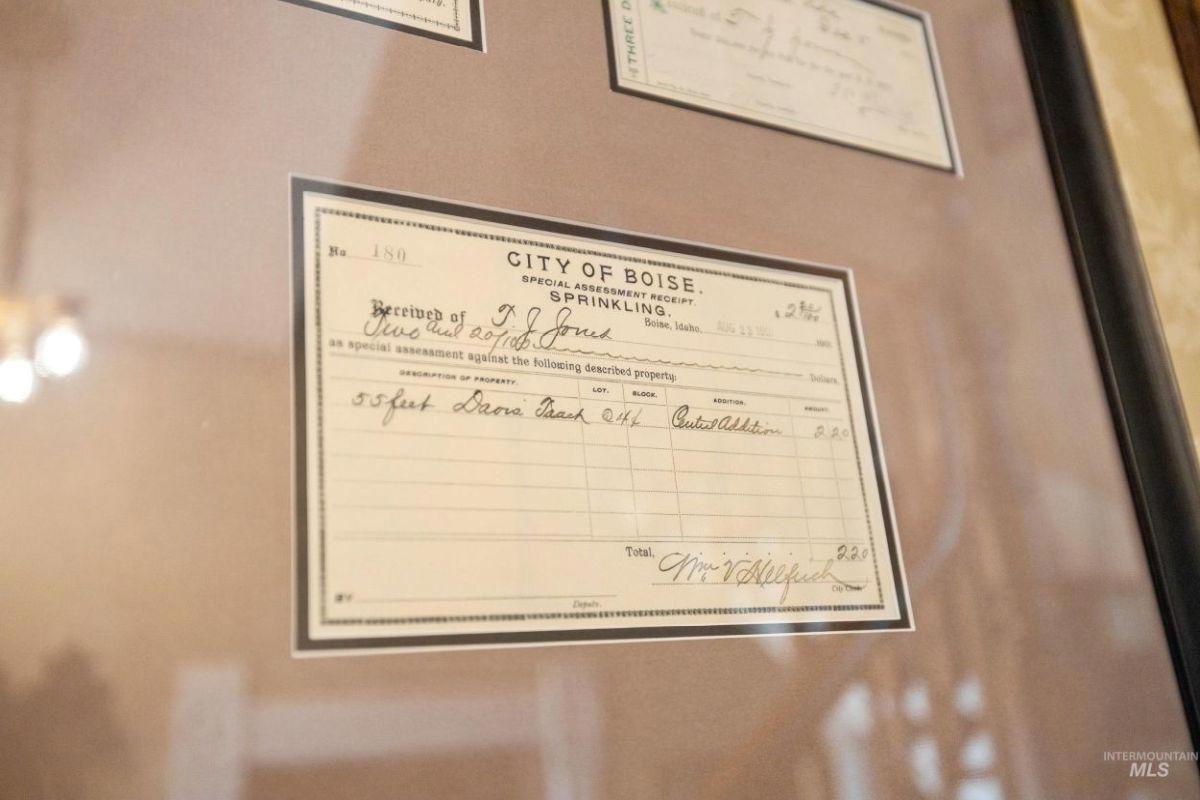 THREE D
No 180
CITY OF BOISE.
SPECIAL ASSESSMENT RECEIPT.
SPRINKLING.
$ 2 20/100
Received of T J Jones
Boise, Idaho, AUG 190
Two and 20/100 Dollars,
as special assessment against the following described property:
DESCRIPTION OF PROPERTY. LOT. BLOCK. ADDITION. AMOUNT.
55 feet Davis Central Addition 2 20
Total, 2 20
Wm V Helfrich
City Clerk
BY
Deputy.
INTERMOUNTAIN
MLS